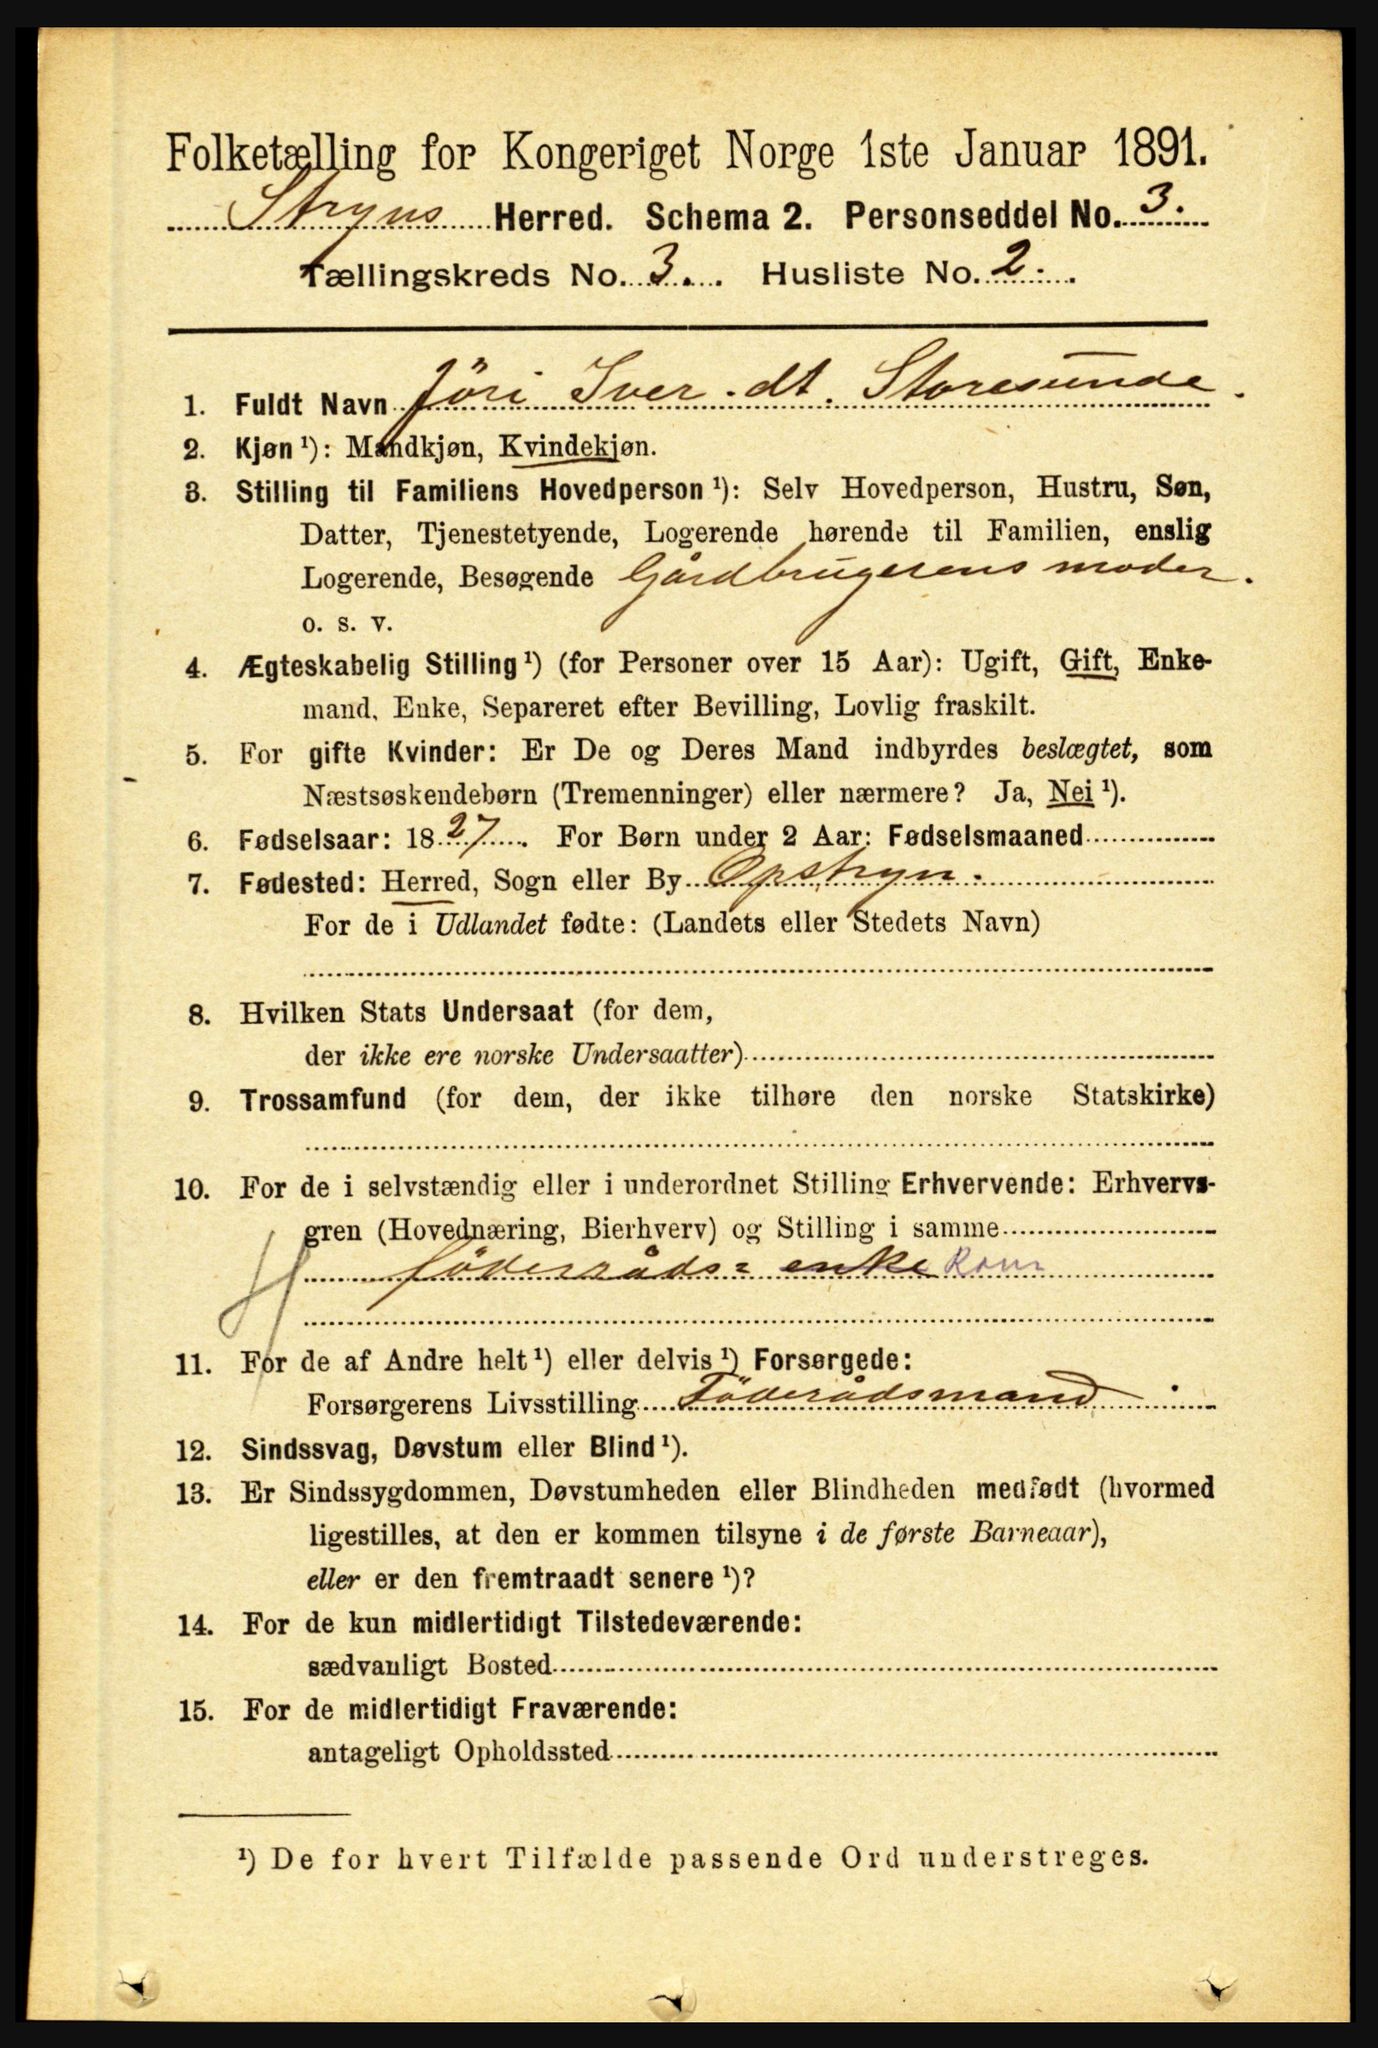 Folketælling for Kongeriget Norge 1ste Januar 1891.
Stryns Herred. Schema 2. Personseddel No. 3.
Tællingskreds No. 3. Husliste No. 2.
1. Fuldt Navn Jöri Iver.dt. Storesunde.
2. Kjøn ¹): Mandkjøn, Kvindekjøn.
3. Stilling til Familiens Hovedperson ¹): Selv Hovedperson, Hustru, Søn,
Datter, Tjenestetyende, Logerende hørende til Familien, enslig
Logerende, Besøgende Gårdbrugerens moder.
o. s. v.
4. Ægteskabelig Stilling ¹) (for Personer over 15 Aar): Ugift, Gift, Enke-
mand, Enke, Separeret efter Bevilling, Lovlig fraskilt.
5. For gifte Kvinder: Er De og Deres Mand indbyrdes beslægtet, som
Næstsøskendebørn (Tremenninger) eller nærmere? Ja, Nei ¹).
6. Fødselsaar: 1827. For Børn under 2 Aar: Fødselsmaaned
7. Fødested: Herred, Sogn eller By Opstryn.
For de i Udlandet fødte: (Landets eller Stedets Navn)
8. Hvilken Stats Undersaat (for dem,
der ikke ere norske Undersaatter)
9. Trossamfund (for dem, der ikke tilhøre den norske Statskirke)
10. For de i selvstændig eller i underordnet Stilling Erhvervende: Erhvervs-
gren (Hovednæring, Bierhverv) og Stilling i samme
föderåds= enke Kone
11. For de af Andre helt ¹) eller delvis ¹) Forsørgede:
Forsørgerens Livsstilling Föderådsmand.
12. Sindssvag, Døvstum eller Blind ¹).
13. Er Sindssygdommen, Døvstumheden eller Blindheden medfødt (hvormed
ligestilles, at den er kommen tilsyne i de første Barneaar),
eller er den fremtraadt senere ¹)?
14. For de kun midlertidigt Tilstedeværende:
sædvanligt Bosted
15. For de midlertidigt Fraværende:
antageligt Opholdssted
¹) De for hvert Tilfælde passende Ord understreges.